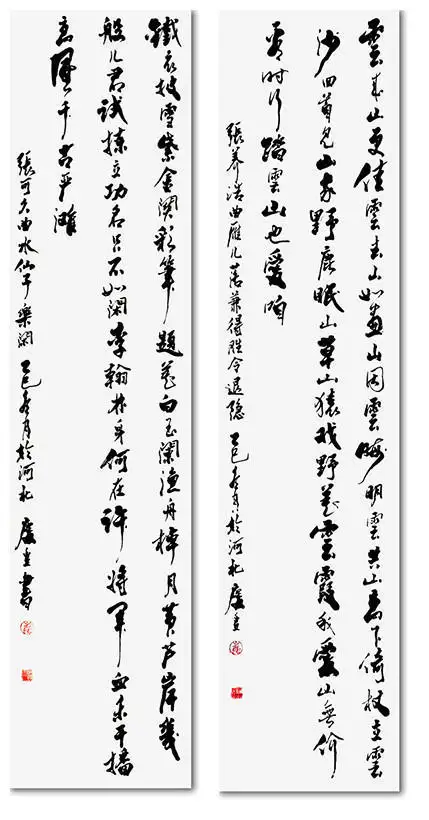 雲來山更佳雲去山如畫山因雲晦明雲共山高下倚杖立雲
沙回首見山家野鹿眠山草山猿戲野花雲霞我愛山無價
看時行踏雲山也愛咱
張養浩曲雁兒落兼得勝令退隱 乙巳冬月於河北
鐵衣披雪紫金關彩筆題花白玉闌漁舟棹月黃芦岸幾
般兒君試揀立功名只不如閑李翰林身何在許將軍血未干播
高風千古嚴灘
張可久曲水仙子樂閑 乙巳冬月於河北 書